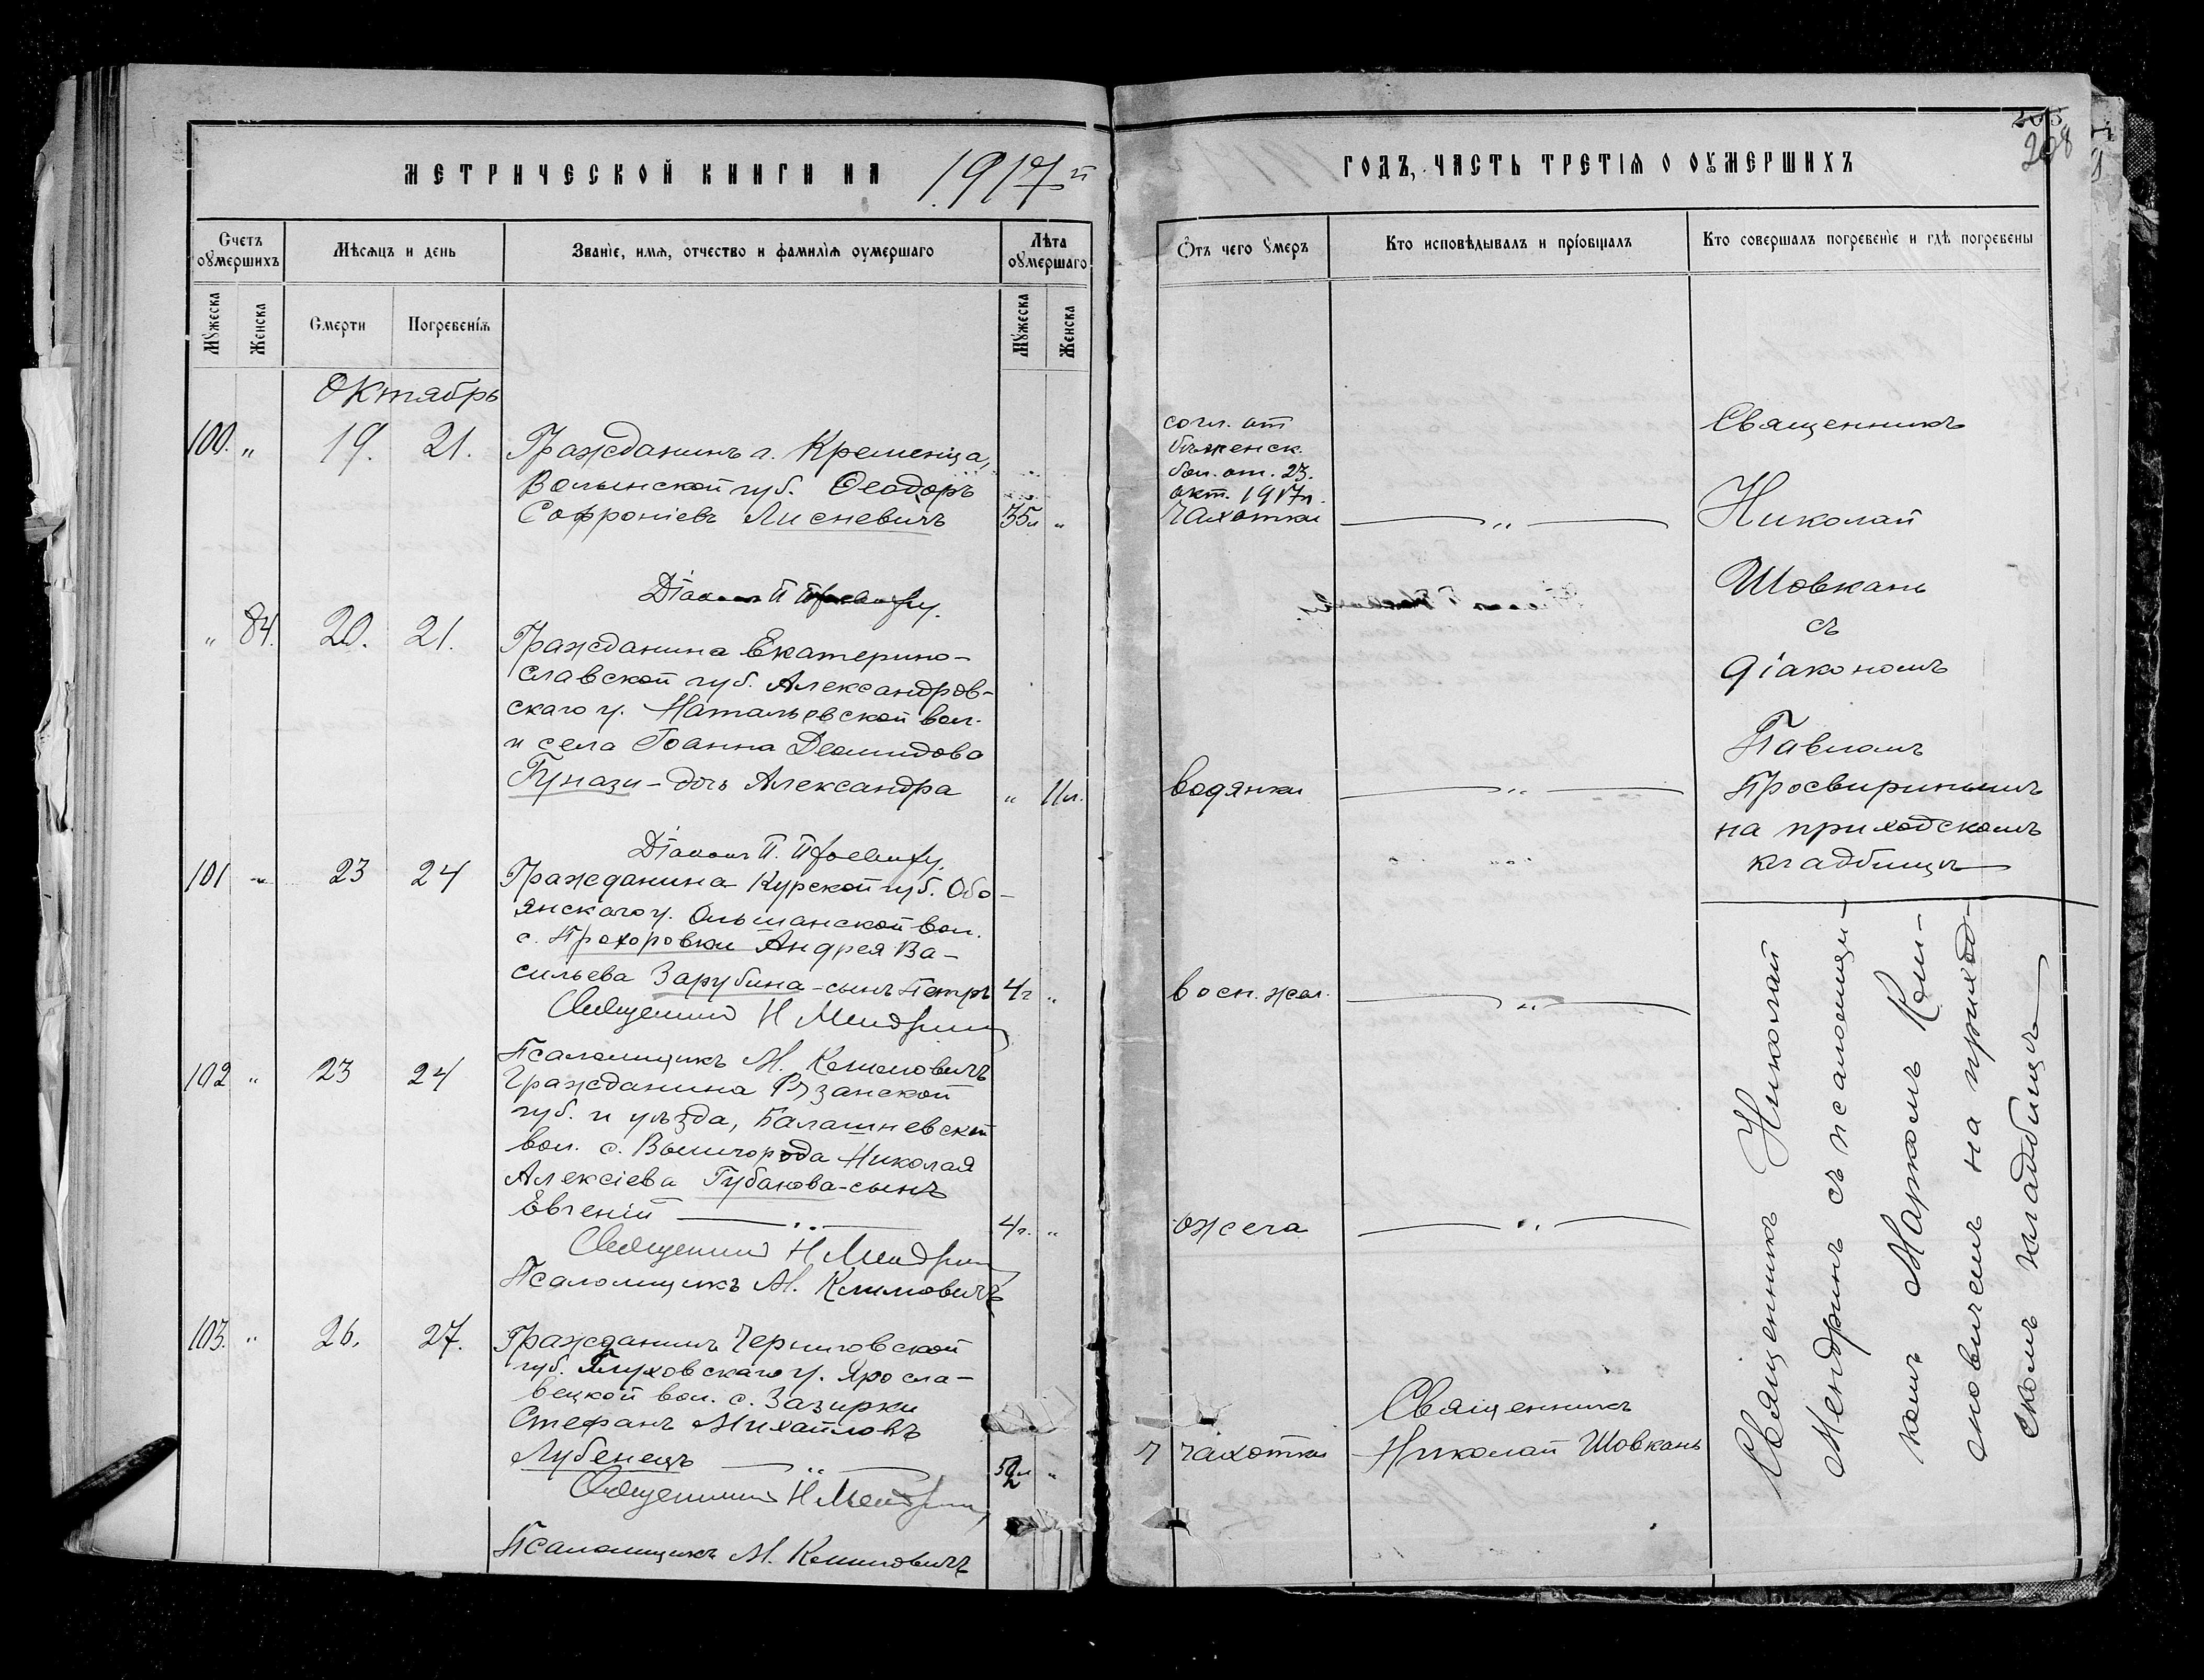 МЕТРИЧЕСКОЙ КНИГИ НА 1917й
Счетъ оумершихъ
Мѣсяцъ и день
Званіе, имя, отчество и фамилія оумершаго
Лѣта оумершаго
Мужеска
Женска
Смерти
Погребенія
Мужеска
Женска
Октябрь
100. " 19. 21.
Гражданинъ г. Кременца,
Волынской губ. Ѳеодоръ
Софроніевъ Лисневичъ 35л "
Діаконъ П
" 84. 20. 21.
Гражданина Екатерино-
славской губ. Александров-
скаго у. Натальевской вол.
и села Іоанна Деомидова
Гунази - дочь Александра " 11л.
Діаконъ П.
101 " 23 24
Гражданина Курской губ. Обо-
янскаго у. Ольшанской вол.
с. Прохоровки Андрея Ва-
сильева Зарубина - сынъ Петръ 4г "
Священникъ Н Мендринъ
Псаломщикъ М. Климовичъ
102 " 23 24
Гражданина Рязанской
губ. и уѣзда, Балашневской
вол. с. Вышгорода Николая
Алексіева Губанова - сынъ
Евгеній — " — 4г. "
Священникъ Н Мендринъ
Псаломщикъ М. Климовичъ
103. " 26. 27.
Гражданинъ Черниговской
губ. Глуховскаго у. Яросла-
вецкой вол. с. Зазирки
Стефанъ Михайловъ
Лубенецъ — " — "
Священникъ Н Мендринъ
Псаломщикъ М. Климовичъ
ГОДЪ, ЧАСТЬ ТРЕТІЯ О ОУМЕРШИХЪ
208
Отъ чего умеръ
Кто исповѣдывалъ и пріобщалъ
Кто совершалъ погребеніе и гдѣ погребены
согл. от
бол. от. 23.
окт. 1917г.
чахотки — " —
водянки — " —
восп. жел. — " —
ожега — " —
чахотки
Священникъ
Николай Шовкань
Священникъ
Николай
Шовкань
съ
діакономъ
Павломъ
Просвиринымъ
на приходскомъ
кладбищѣ
Священникъ Николай
Мендринъ съ псаломщи-
комъ Маркомъ Кли-
мовичемъ на приход-
скомъ кладбищѣ